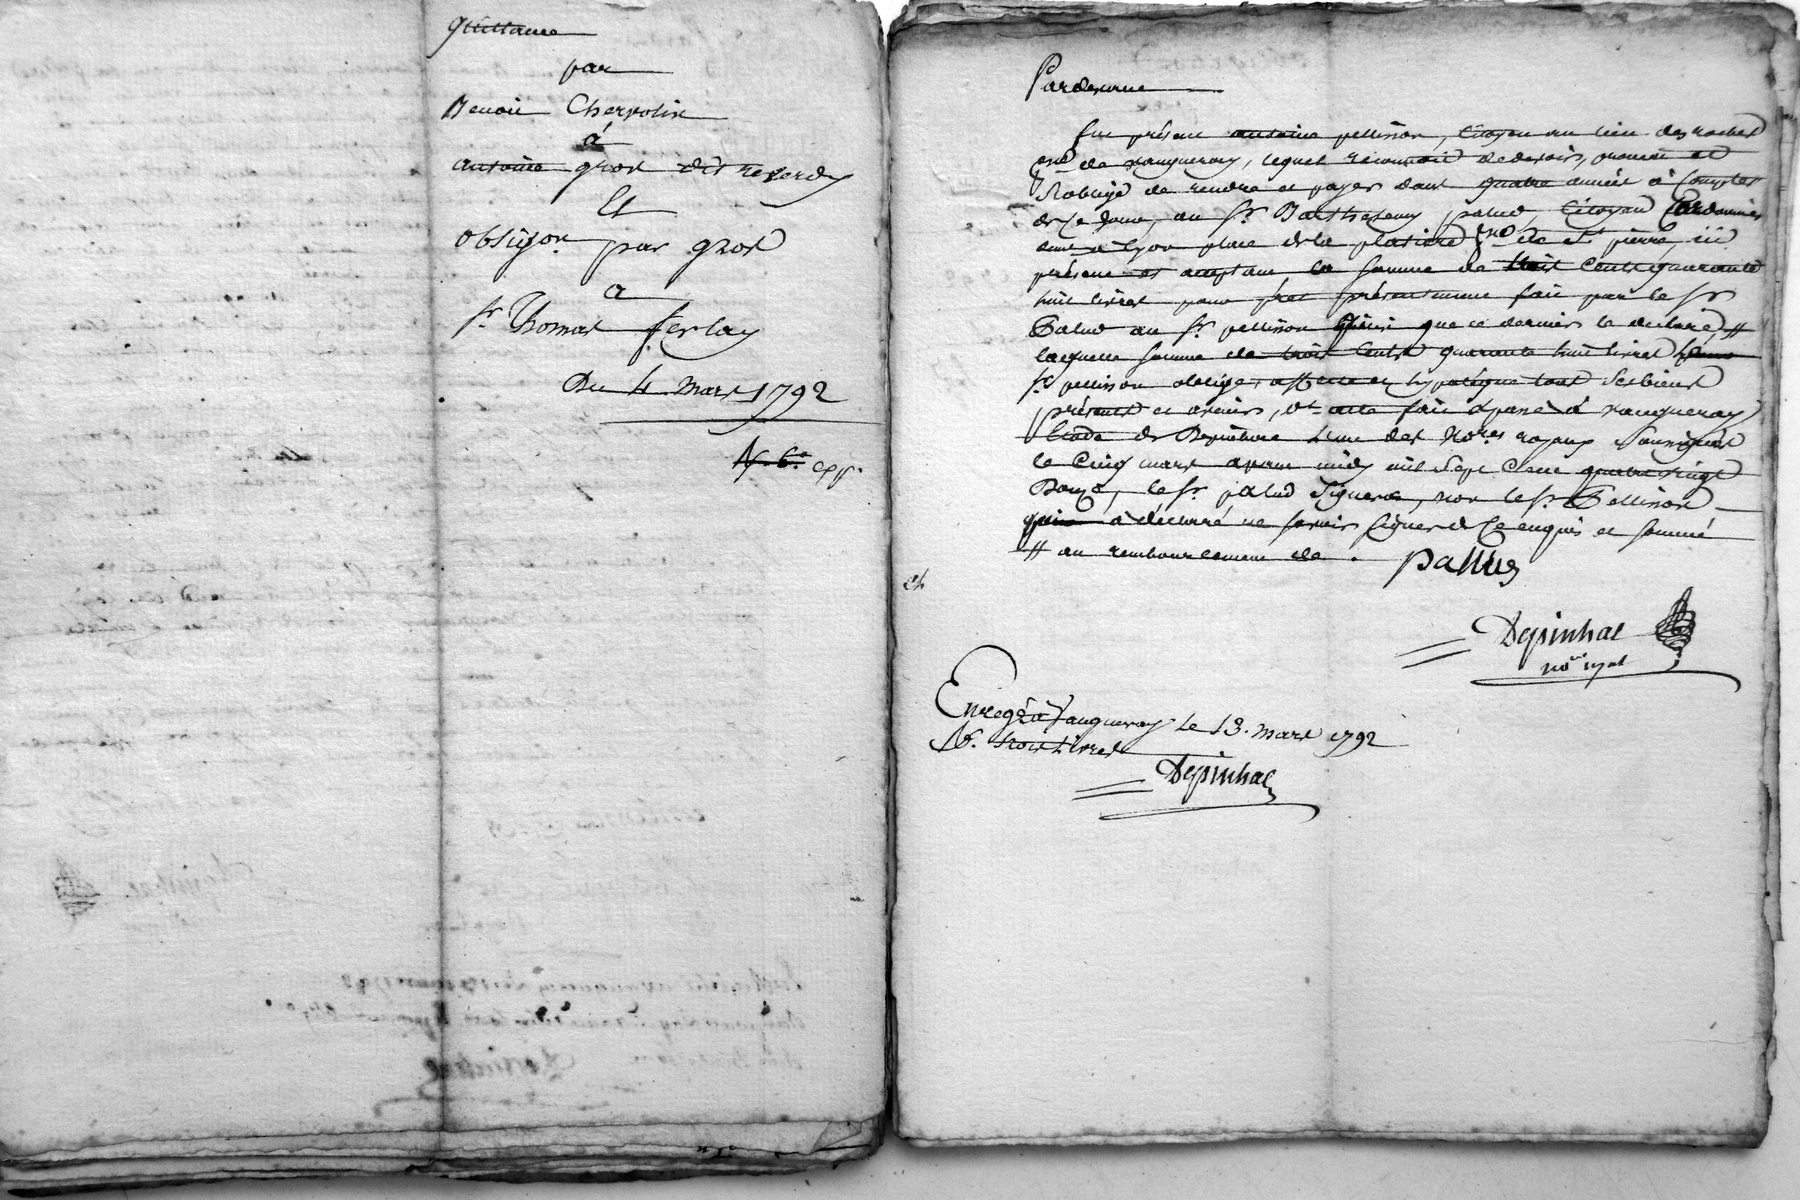 Quittance
par
Benoit Chervolin
à
antoine gros dit reverdy
Et
obligon. par gros
a
sr. Thomas ferlay
Du 4 mars 1792
Pardevant
fut présent antoine pellisson, citoyen au lieu des roches
de vaugneray, lequel reconnoit de devoir, promet et
s'oblige de rendre et payer dans quatre années à compter
de ce jour, au sr. Barthelemy palud, citoyen Cordonnier
demt. à lyon place de la platiere psse. de st. pierre, ici
présent et acceptant la somme de trois cents quarante
huit livres pour prêt présentement fait par le sr.
Palud au sr. pellisson ainsi que ce dernier le declare, #
laquelle somme de trois cents quarante huit livres le
sr. pellisson oblige, affecte et hypotéque tous ses biens
présents et avenir, dt. acte fait & passé à vaugneray
Etude de Depinhac l'un des nores. royaux soussignés
le cinq mars avant midy mil sept cent quatre vingt
Douze, le sr. palud signera, non le sr. Pellisson
qui a déclaré ne savoir signer de ce enquis et sommé
# au remboursement de .
Pallud
Depinhac
nore. royal
Enregé. à Vaugneray le 13. mars 1792
R. trois livres
Depinhac